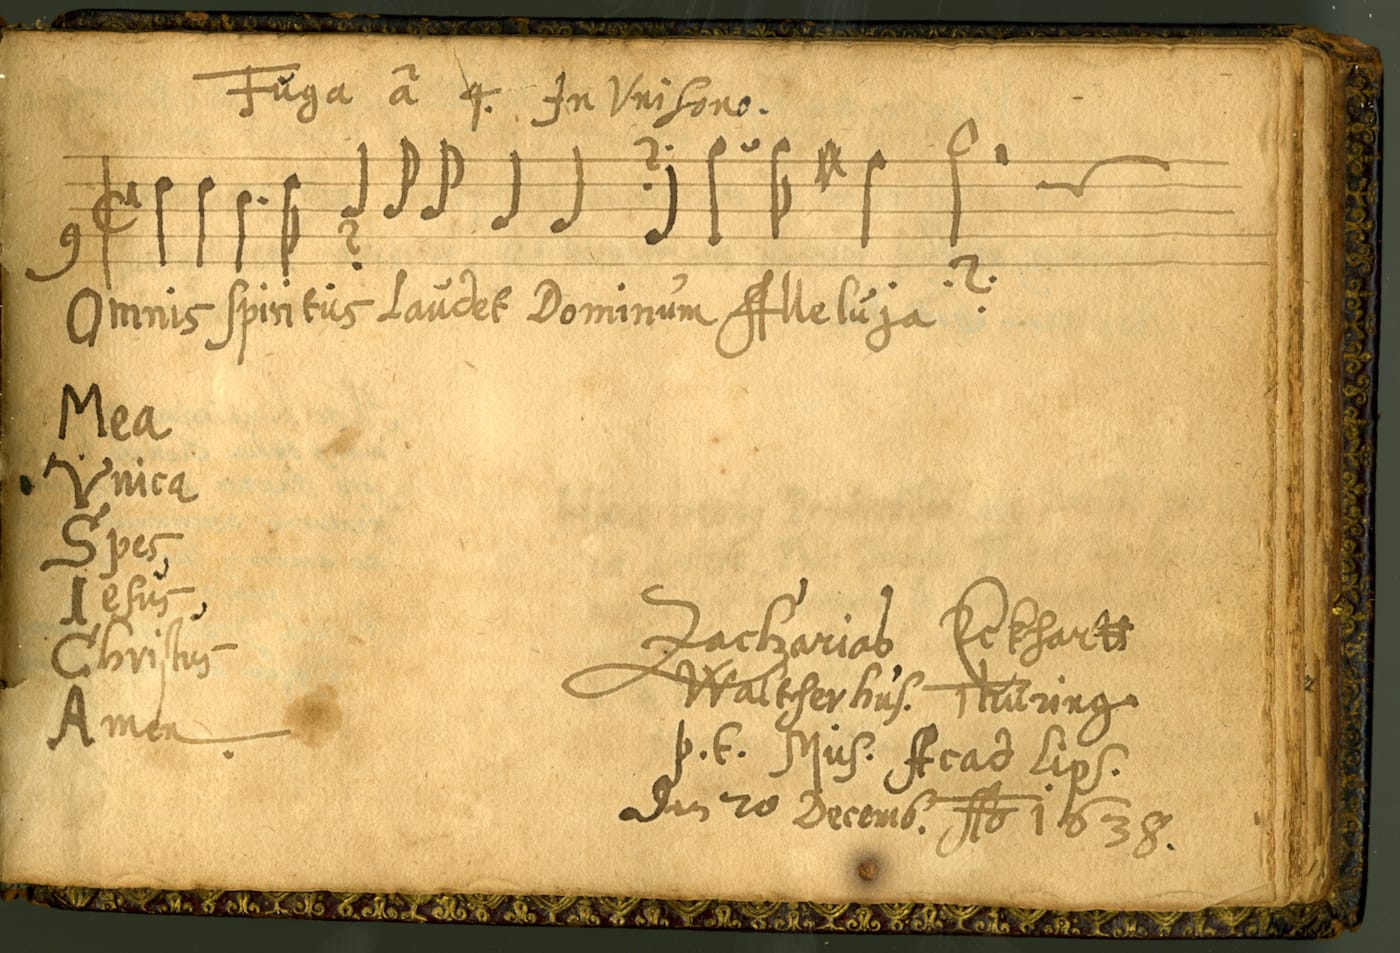 Fuga à 4. In Unisono.
Omnis spiritus Laudet Dominum Alleluja
Mea
Vnica
Spes,
Iesus,
Christus
Amen
Zacharias Eckhartt
Waltherhus. Thüring
p.t. Mus. Acad Lips.
Den 20 Decemb. Ao 1638.